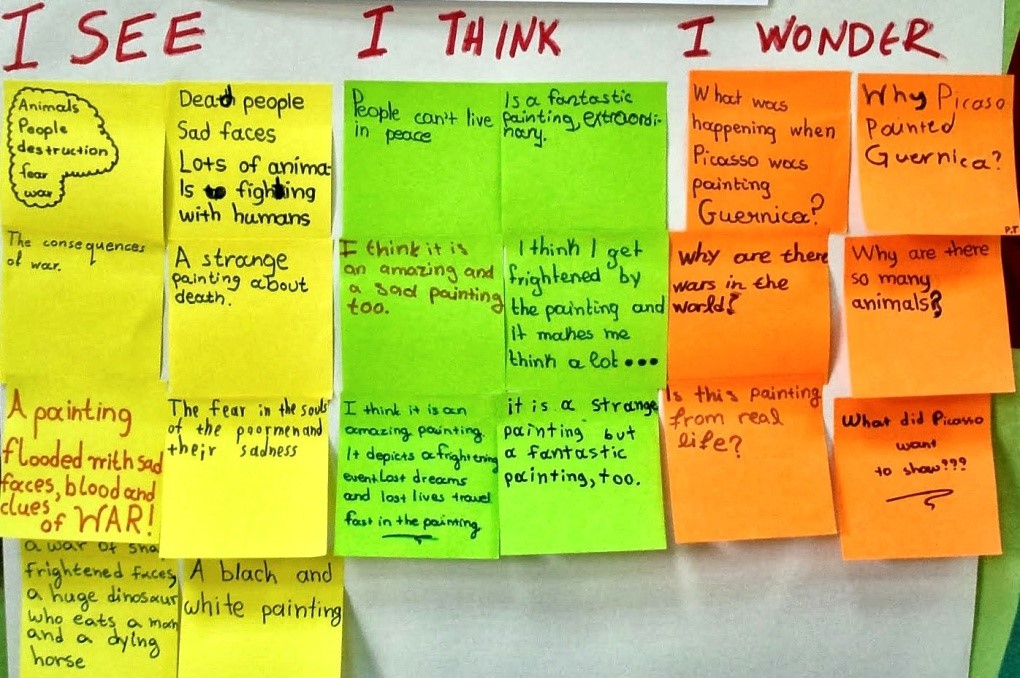 I SEE
Animals
People
destruction
fear
war
Dead people
Sad faces
Lots of anima-
ls to fighting
with humans
The consequences
of war.
A strange
painting about
death.
A painting
flooded with sad
faces, blood and
clues of WAR!
The fear in the souls
of the poor men and
their sadness
a war of
frightened faces,
a huge dinosaur
who eats a man
and a dying
horse
A black and
white painting
I THINK
People can't live
in peace
Is a fantastic
painting, extraordi-
nary.
I think it is
an amazing and
a sad painting
too.
I think I get
frightened by
the painting and
it makes me
think a lot...
I think it is an
amazing painting.
It depicts a frightening
event. Lost dreams
and lost lives travel
fast in the painting
it is a strange
painting but
a fantastic
painting, too.
I WONDER
What was
happening when
Picasso was
painting
Guernica?
Why Picaso
Painted
Guernica?
P.T
why are there
wars in the
world?
Why are there
so many
animals?
Is this painting
from real
life?
What did Picasso
want
to show???